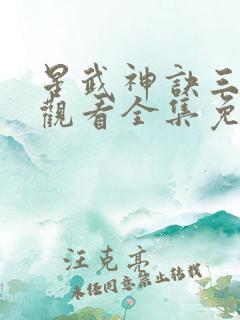 星武神訣三
觀看全集免
汪克亮
未經同意禁止轉載